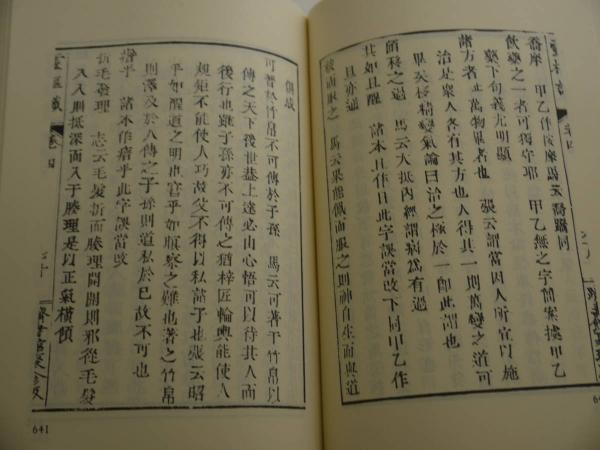 喬摩 甲乙作按摩馬云喬蹻同
飲藥之一者可獨守耶 甲乙無之字簡案據甲乙
藥下句義尤明顯
諸方者 止萬物畢者也 張云謂當因人所宜以施
治是衆人各有其方也人得其一則萬變之道可
畢 移精變氣論曰治之極於一即此謂也
師務之過 馬云大抵內經謂病爲有過
其如且醒 諸本且作日此字誤當改下同甲乙作
且亦通
被而服之 馬云果能佩而服之則神自生而與道
俱成
可著於竹帛不可傳於子孫 馬云可著于竹帛以
傳之天下後世蓋上達必由心悟可以待其人而
後行也雖子孫亦不可傳之猶梓匠輪輿能使人
規矩不能使人巧故父不得以私諸子也張云昭
乎如醒道之明也窘乎如瞑察之難也著之竹帛
則澤及於人傳之子孫則道私於己故不可也
諸本作瘖乎此字誤當改
折毛發理 志云毛髮折而腠理開開則邪從毛髮
入入則抵深而入于腠理是以正氣橫傾
靈樞識
卷四
641